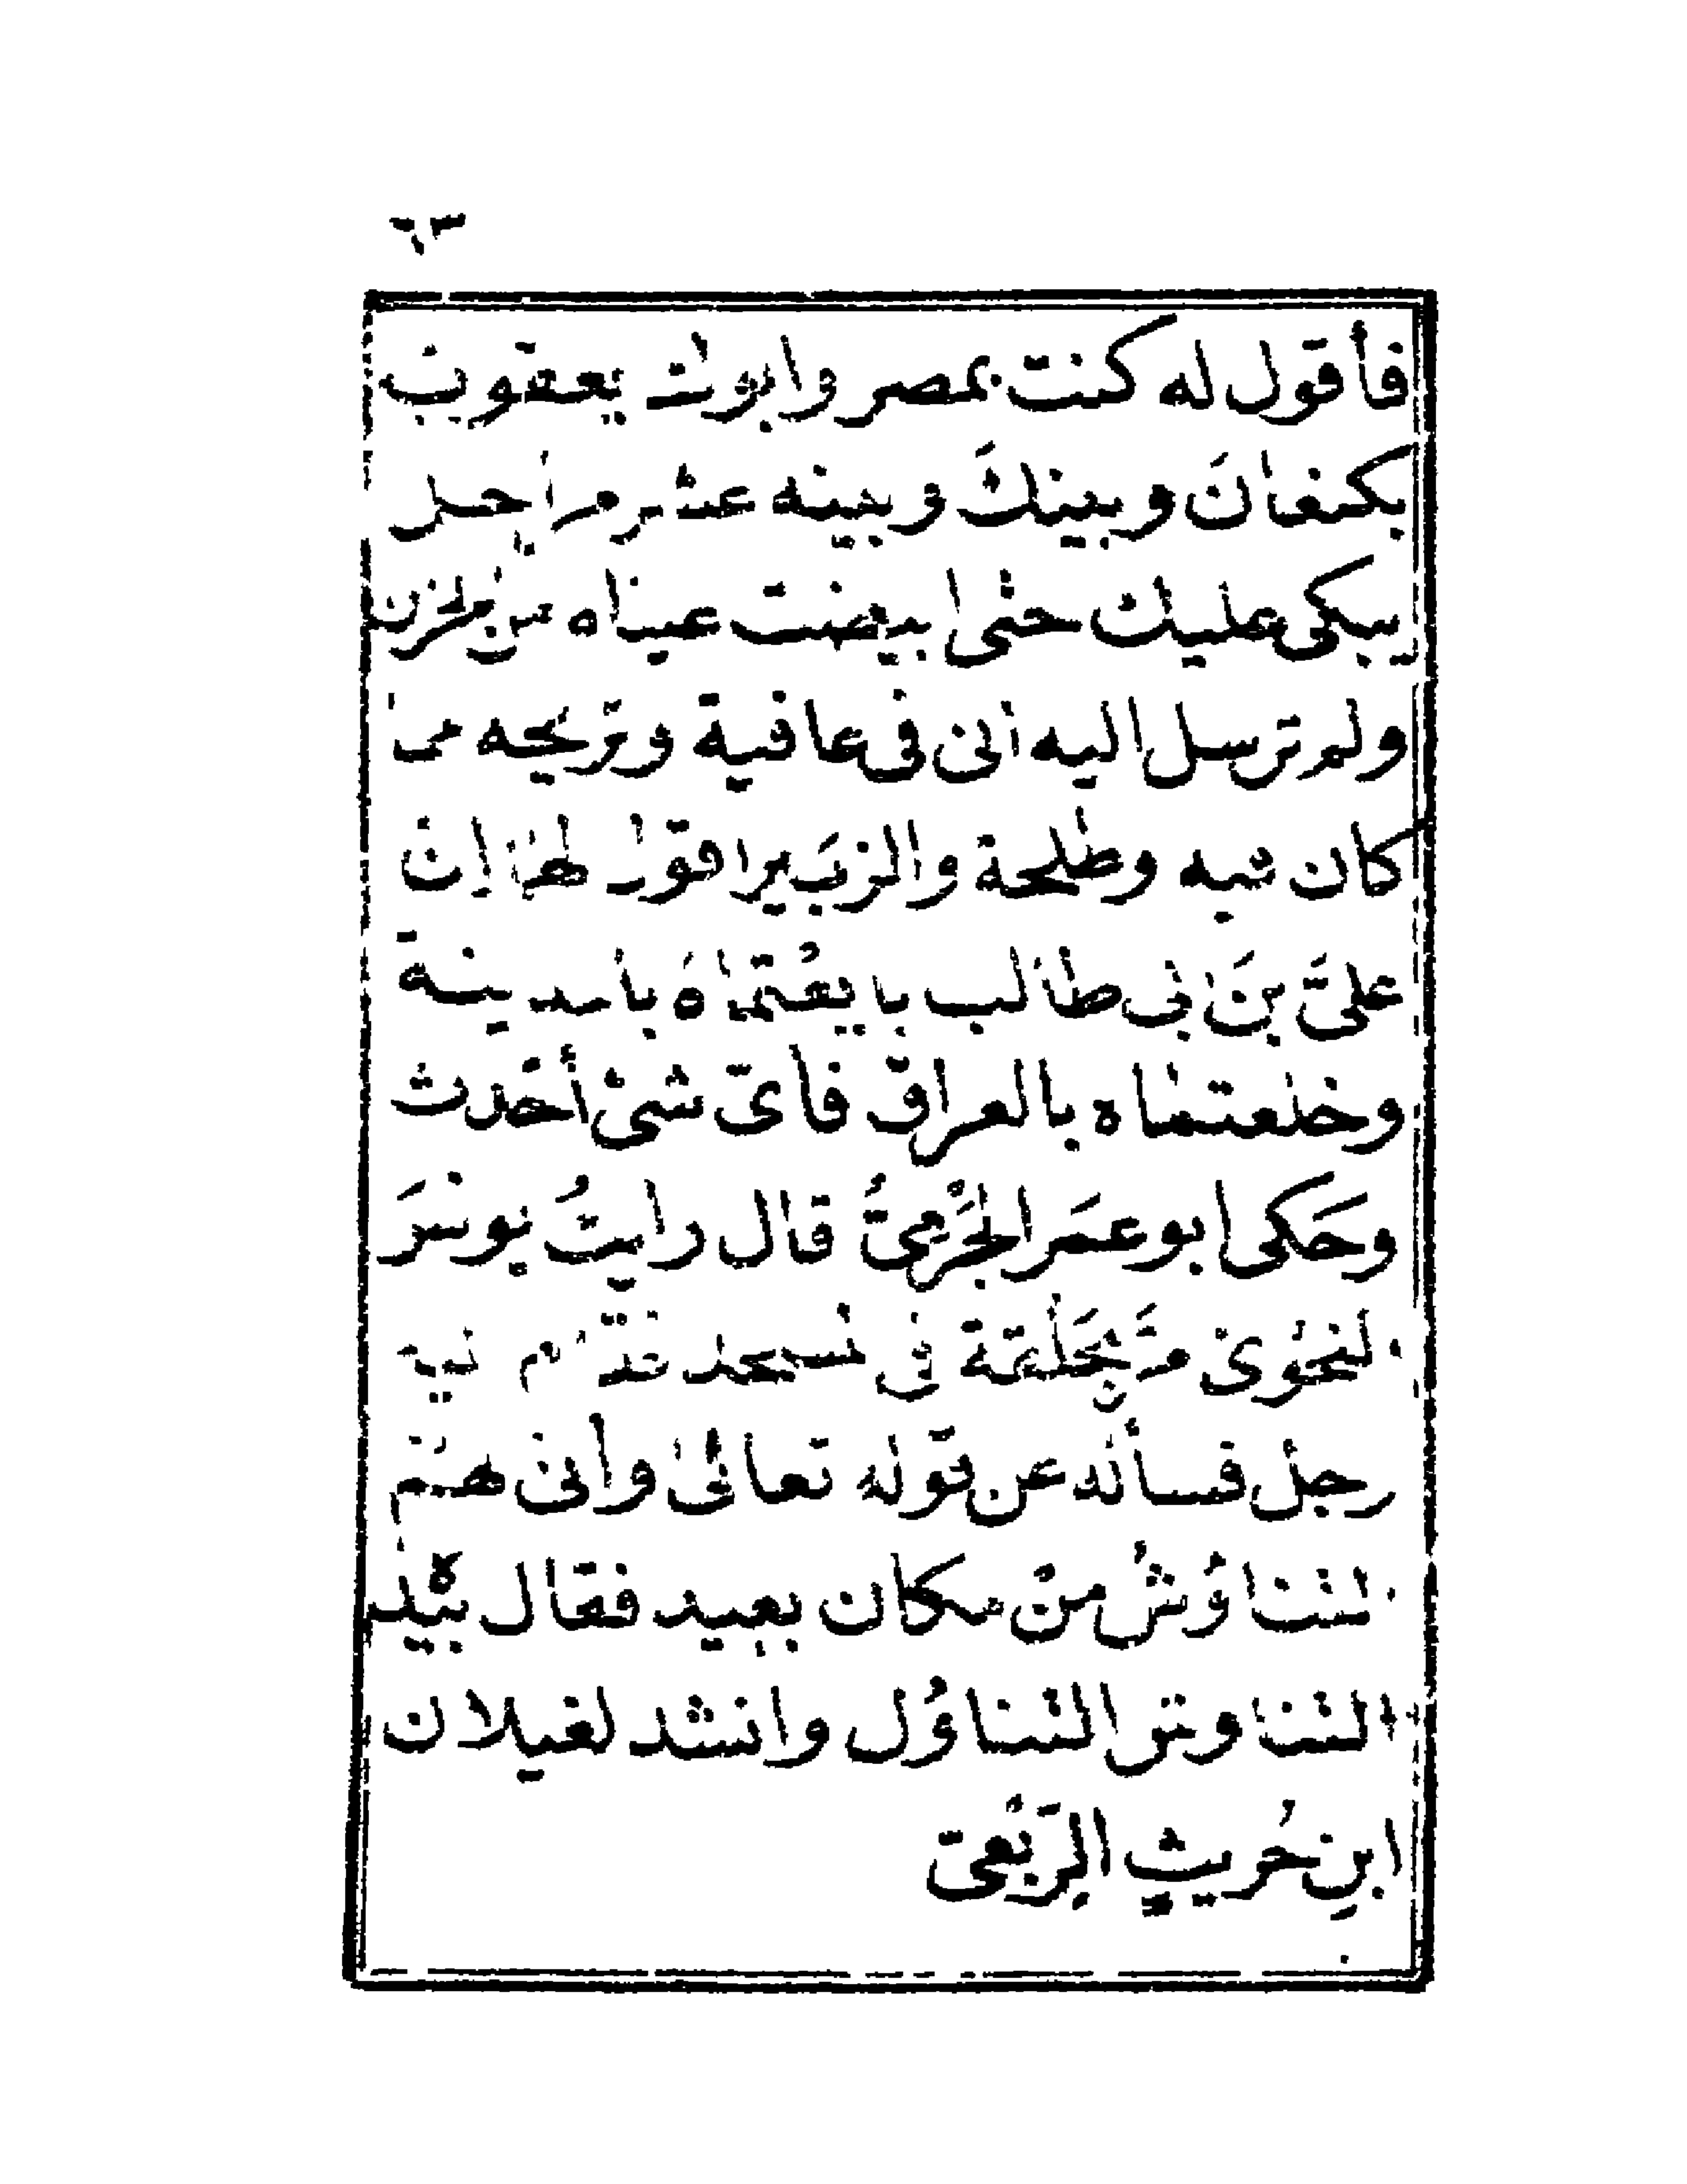 ٦٣
فأقول له كنت بمصر وابوك يعقوب
بكنعانَ وبينكَ وبينه عشر مراحل
يبكى عليك حتى ابيضت عيناه من الحزن
ولم ترسل اليه انى فى عافية وتريحه مما
كان فيه وطلحة والزبَير اقول لهما إن
علىَّ بنَ ابى طالب بايعْتماهُ بالمدينة
وخلعتماه بالعراق فاىّ شئ أحْدث
وحَكى ابو عمَر الجَرْمىُّ قال رايتُ يونسَ
النحْوىّ مرَّ بحَلْقة فى المسجد فقام اليه
رجل فسأله عن قوله تعالى وأنى لهم
التناؤشُ منْ مكان بعيد فقال بيْده
التناوش التناوُل وانشد لغيلان
ابنِ حُريثٍ الرَّبْعىّ